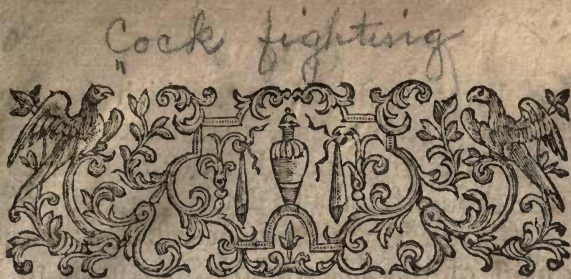 Cock fighting
"